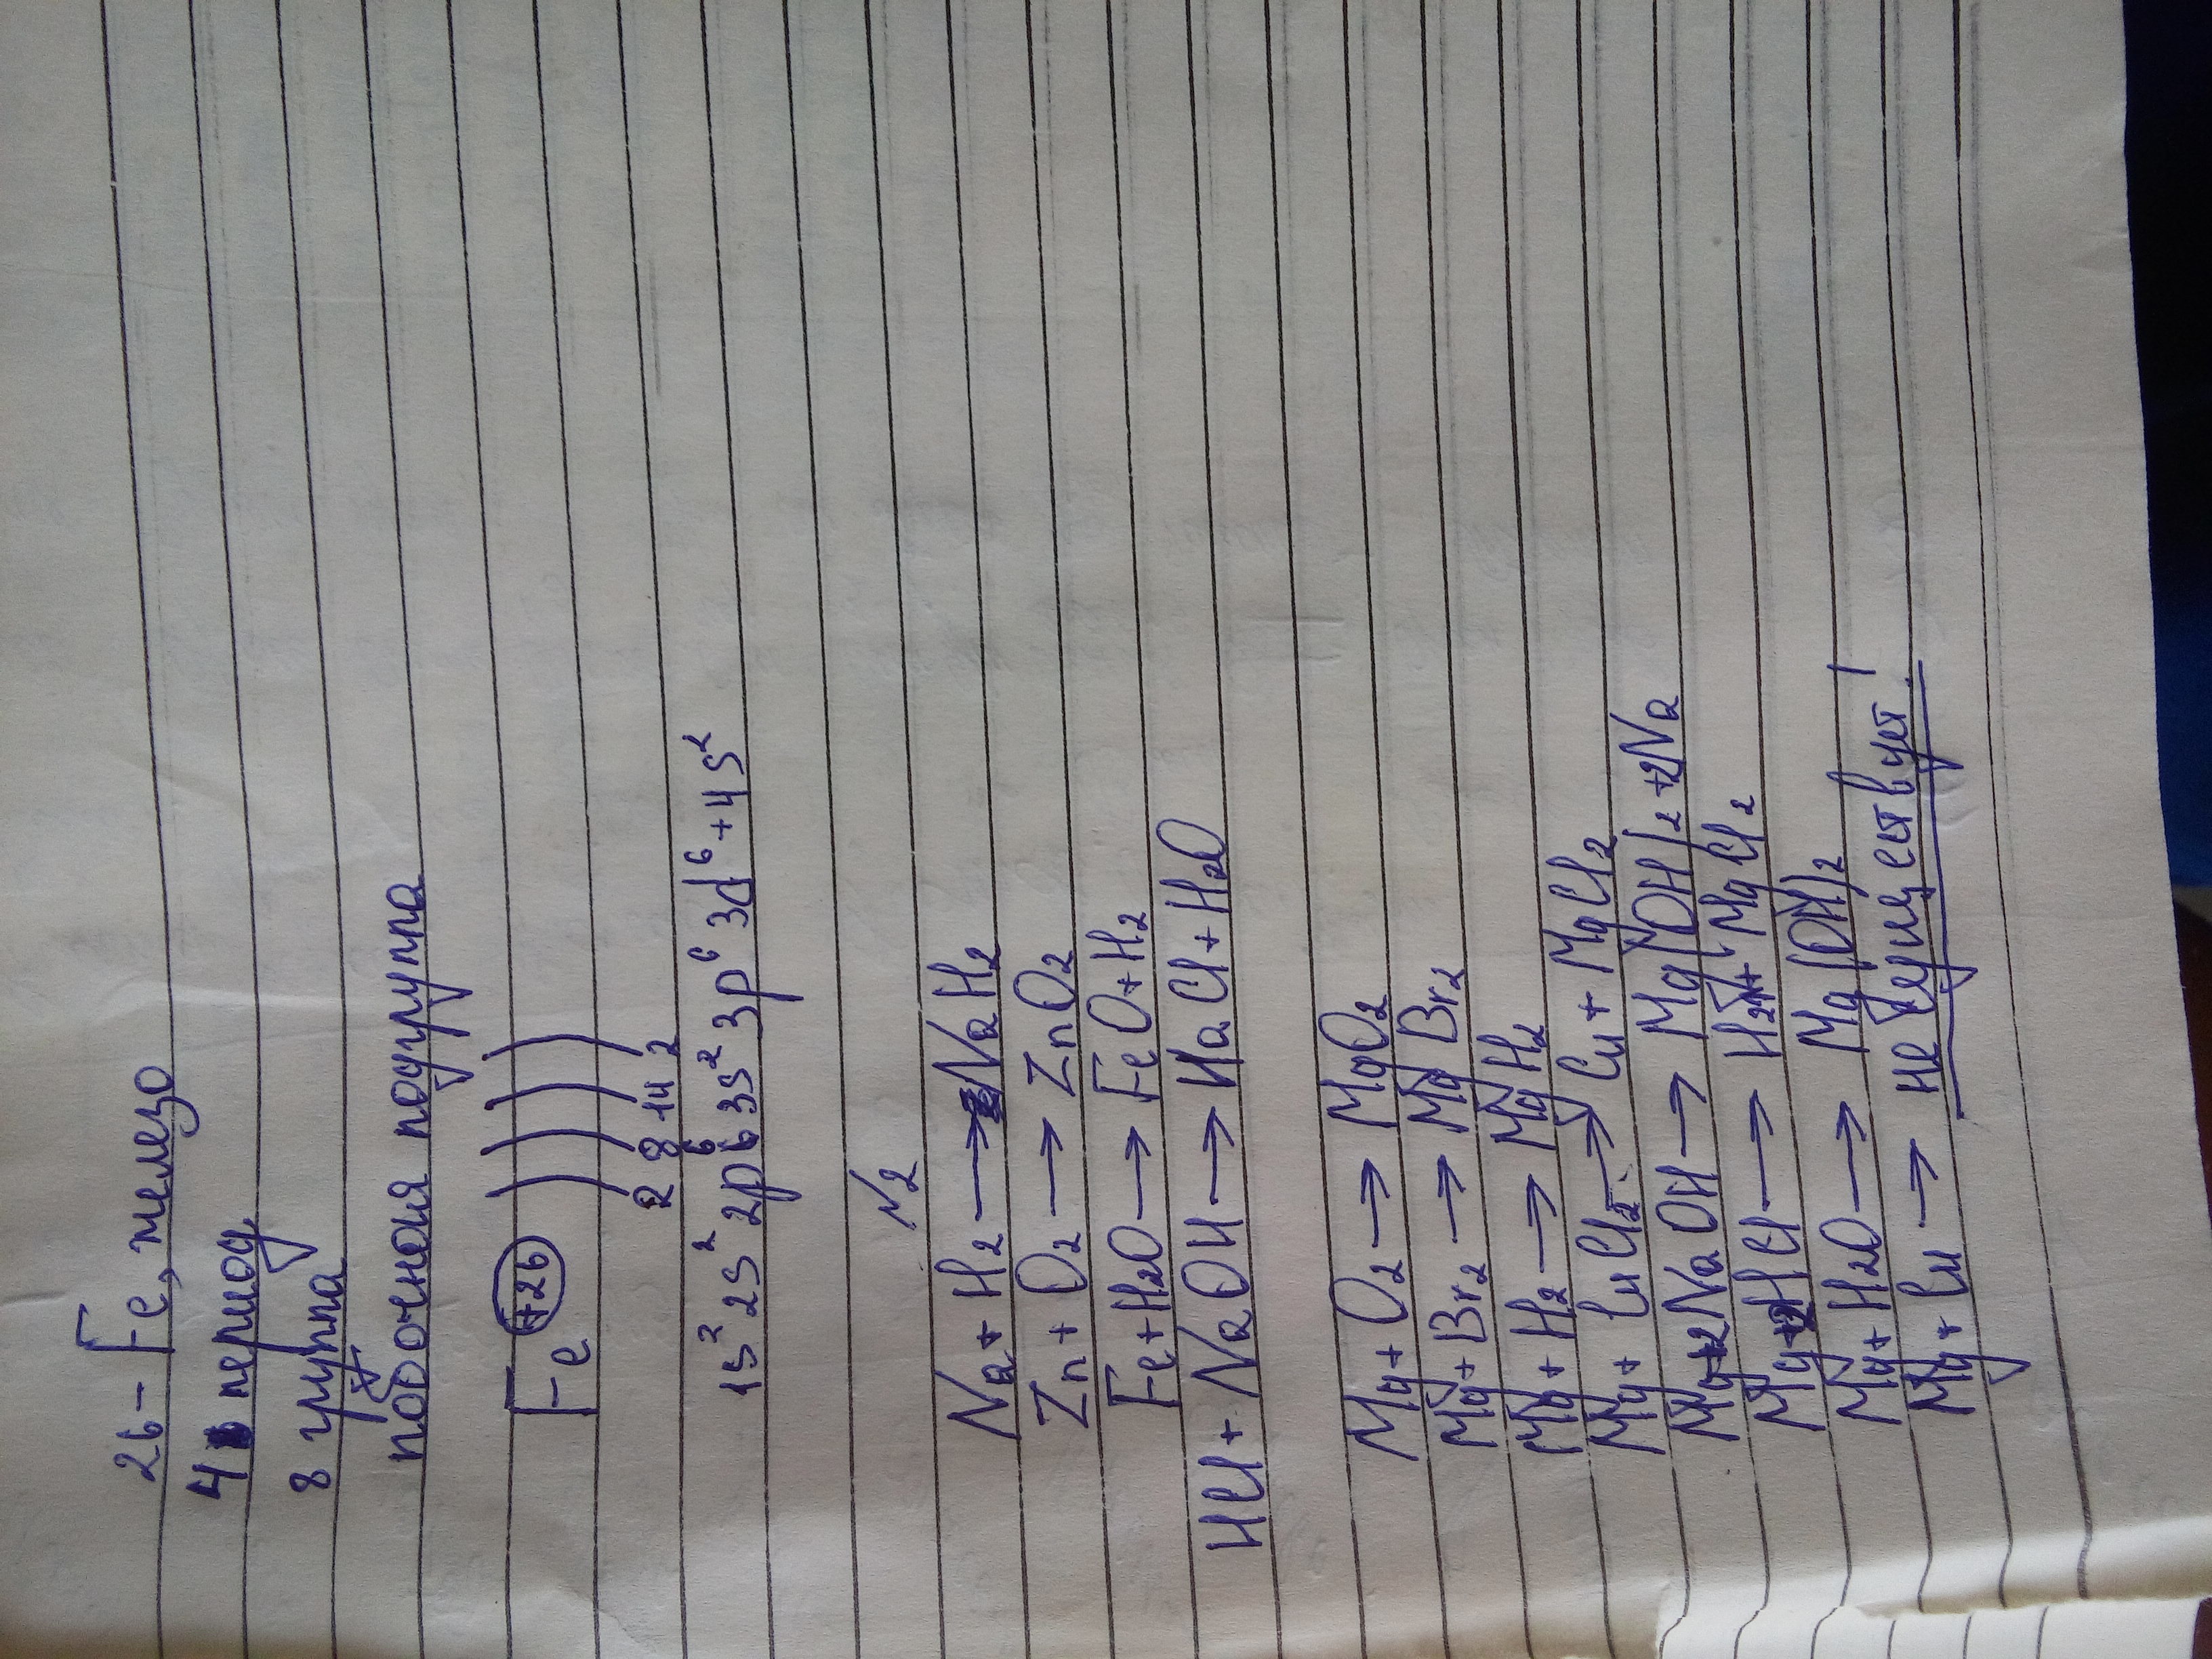 26 - Fe, железо
4 период
8 группа
побочная подгруппа
Fe +26
2 8 14 2
1s² 2s² 2p⁶ 3s² 3p⁶ 3d⁶ + 4s²
№2
Na + H₂ → NaH₂
Zn + O₂ → ZnO₂
Fe + H₂O → FeO + H₂
HCl + NaOH → NaCl + H₂O
Mg + O₂ → MgO₂
Mg + Br₂ → MgBr₂
Mg + H₂ → MgH₂
Mg + CuCl₂ → Cu + MgCl₂
Mg + 2NaOH → Mg(OH)₂ + 2Na
Mg + 2HCl → H₂ + MgCl₂
Mg + H₂O → Mg(OH)₂
Mg + Cu → не существует!